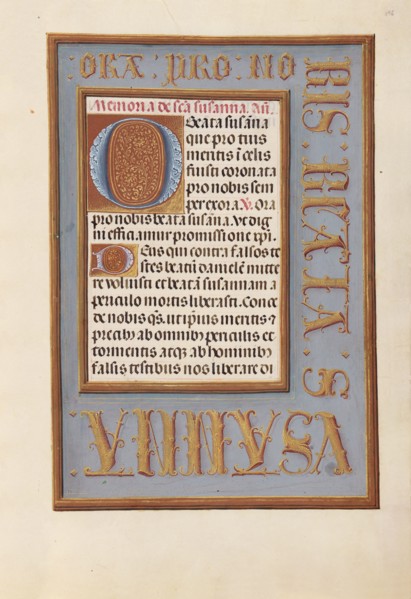 : ORA : PRO : NO
BIS : BEATA : S
VSANNA.
Memoria de scā susanna. An̄.
O Beata susāna
que pro tuis
meritis ī celis
fuisti coronata
pro nobis sem
per exora. V. Ora
pro nobis beata susāna. Vt dig
ni efficiamur promissione xp̄i.
Deus qui contra falsos te
stes beatū danielē mitte
re voluisti et beatā susannam a
periculo mortis liberasti. Conce
de nobis qs̄. ut ip̄ius meritis ⁊
precibꝰ ab omnibꝰ periculis et
tormentis atqꝫ ab hominibꝰ
falsis testibus nos liberare di